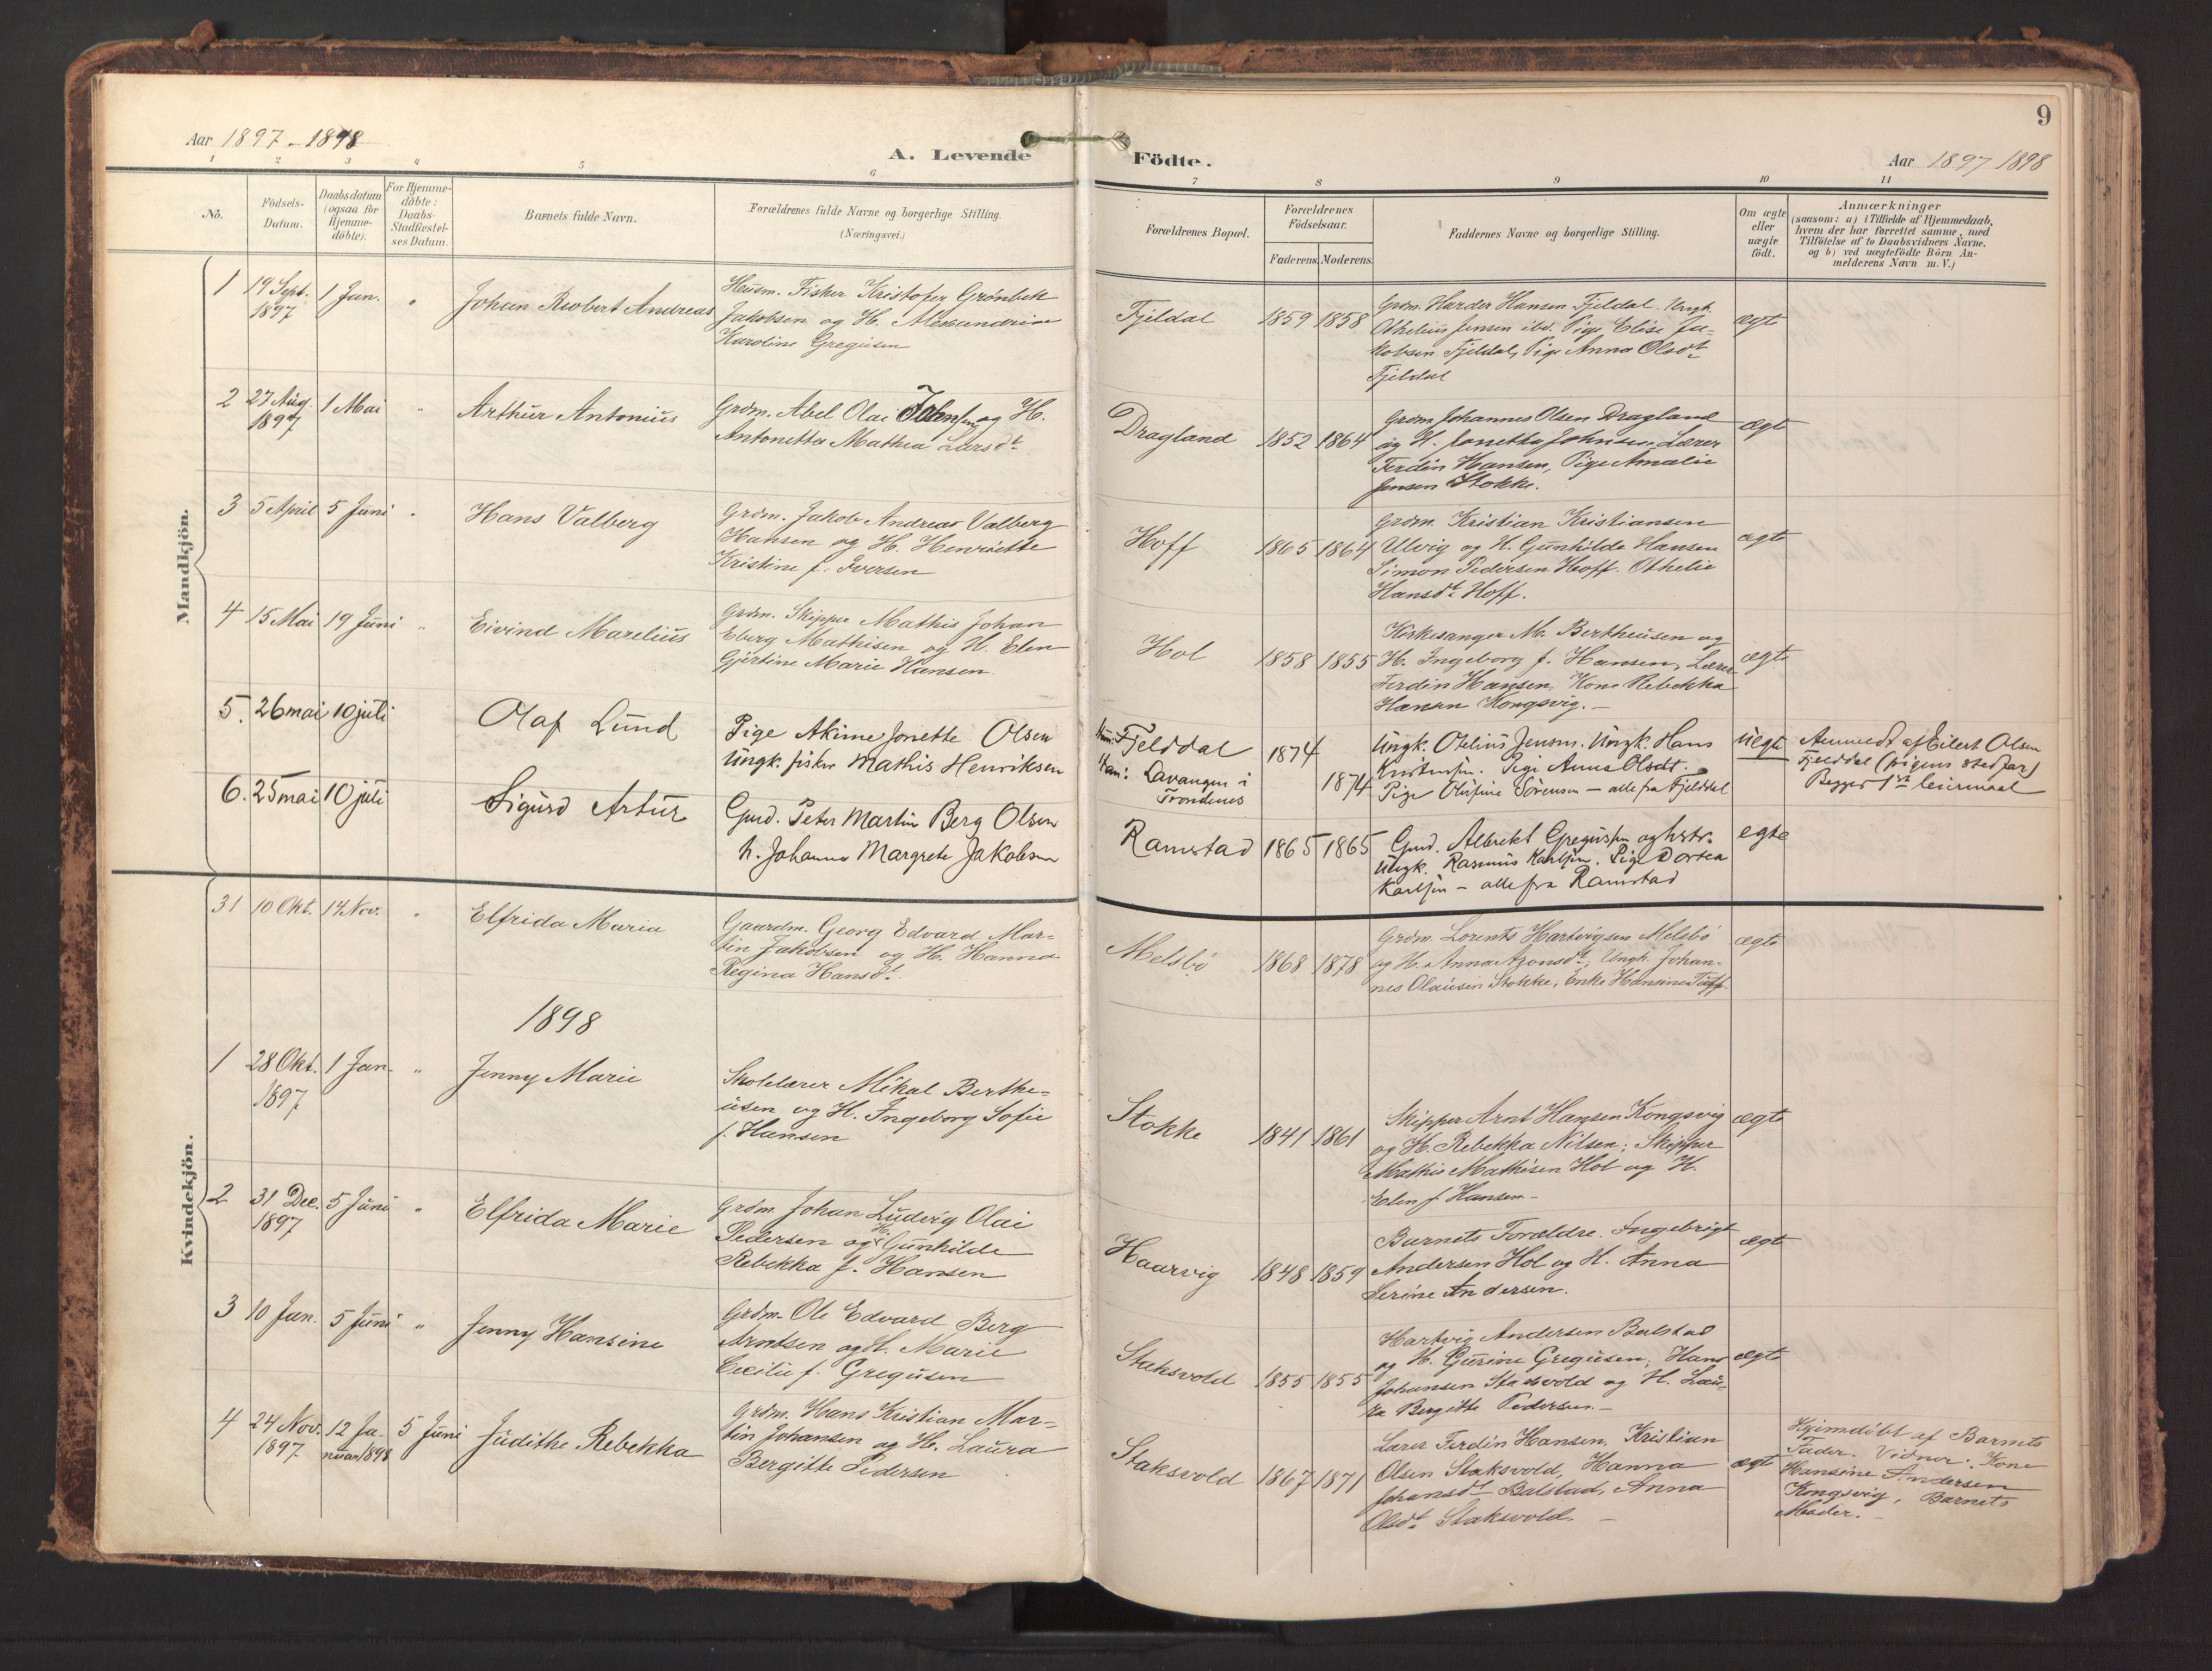 Aar 1897 - 1898
A. Levende
1 2 3 4 5 6
No.
Födsels-
Datum.
Daabsdatum
(ogsaa for
Hjemme-
döbte).
For Hjemme-
döbte:
Daabs-
Stadfæstel-
ses Datum.
Barnets fulde Navn.
Forældrenes fulde Navne og borgerlige Stilling.
(Næringsvei.)
Mandkjön.
1 19 Sept. 1897 1 Jan. " Johan Robert Andreas
Husm. Fisker Kristofer Grönbek
Jakobsen og H. Alexandrine
Karoline Gregusen
2 27 Aug. 1897 1 Mai " Arthur Antonius
Grdm. Abel Olai Johnsen og H.
Antonetta Mathea Larsdt
3 5 April 5 Juni " Hans Valberg
Grdm. Jakob Andreas Valberg
Hansen og H. Henriette
Kristine f. Iversen
4 15 Mai 19 Juni " Eivind Marelius
Grdm. Skipper Mathis Johan
Eberg Mathisen og H. Elen
Gjertine Marie Hansen
5. 26 mai 10 juli Olaf Lund
Pige Akime Jonette Olsen
Ungk. fisker Mathis Henriksen
6. 25 mai 10 juli Sigurd Artur
Gmd. Peter Martin Berg Olsen
h. Johanna Margrete Jakobsen
Kvindekjön.
31 10 Okt. 14 Nov. " Elfrida Maria
Gaardm. Georg Edvard Mar-
tin Jakobsen og H. Hanna
Regina Hansdt
1898
1 28 Okt. 1897 1 Jan. " Jenny Marie
Skolelærer Mikal Berthe-
usen og H. Ingeborg Sofie
f. Hansen
2 31 Dec. 1897 5 Juni " Elfrida Marie
Grdm. Johan Ludvig Olai
Pedersen og H. Gunhilde
Rebekka f. Hansen
3 10 Jan. 5 Juni " Jenny Hansine
Grdm. Ole Edvard Berg
Arntsen og H. Marie
Cecilie f. Gregusen
4 24 Nov. 1897 12 Ja-
nuar 1898 5 Juni Judithe Rebekka
Grdm. Hans Kristian Mar-
tin Johansen og H. Laura
Bergitte Pedersen
9
Födte.
Aar 1897 1898
7 8 9 10 11
Forældrenes Bopæl.
Forældrenes
Födselsaar.
Faderens. Moderens.
Faddernes Navne og borgerlige Stilling.
Om ægte
eller
uægte
födt.
Anmærkninger
(saasom: a) i Tilfælde af Hjemmedaab,
hvem der har forrettet samme, med
Tilföielse af to Daabsvidners Navne.
og b) ved uægtefödte Börn An-
melderens Navn m. V.)
Fjeldal 1859 1858
Grdm. Harder Hansen Fjeldal. Ungk.
Othelius Jensen ibd. Pige Elise Ja-
kobsen Fjeldal, Pige Anna Olsdt
Fjeldal
ægte
Dragland 1852 1864
Grdm Johannes Olsen Dragland
og H. Jonetta Johnsen, Lærer
Ferdin Hansen, Pige Amalie
Jensen Stokke.
ægte
Hoff 1865 1864
Grdm. Kristian Kristiansen
Ulvig og H. Gunhilde Hansen
Simon Pedersen Hoff. Othelie
Hansdt Hoff.
ægte
Hol 1858 1855
Kirkesanger M. Bertheusen og
H. Ingeborg f. Hansen, Lærer
Ferdin Hansen, Kone Rebekka
Hansen Kongsvig. -
ægte
Hun: Fjelddal 1874
Han: Lavangen i 1874
Trondenes
Ungk. Otelius Jensen. Ungk. Hans
Kristensen. Pige Anna Olsdt.
Pige Olufine Sörensen - alle fra Fjelddal
uegte
Anmeldt af Eilert Olsen
Fjelddal (pigens stedfar)
Begges 1ste leiermaal
Ramstad 1865 1865
Gmd. Albrekt Gregussen og hstr.
Ungk. Rasmus Karlsen. Pige Dortea
Karlsen - alle fra Ramstad
egte
Melsbö 1868 1878
Grdm. Lorents Hartvigsen Melsbö
og H. Anna Aronsdt; Ungk. Johan-
nes Olausen Stokke, Enke Hansine Taff.
ægte
Stokke 1841 1861
Skipper Arnt Hansen Kongsvig
og H. Rebekka Nilsen; Skipper
Mathis Mathisen Hol og H.
Elen f. Hansen. -
ægte
Haarvig 1848 1859
Barnets Forældre. Ingebrigt
Andersen Hol og H. Anna
Serine Andersen.
ægte
Staksvold 1855 1855
Hartvig Andersen Balstad
og H. Gurine Gregusen; Hans
Johansen Staksvold og H. Lau-
ra Bergitte Pedersen. -
ægte
Staksvold 1867 1871
Lærer Ferdin Hansen, Kristian
Olsen Staksvold, Hanna
Johansdt Balstad, Anna
Olsdt Staksvold. -
ægte
Hjemdöbt af Barnets
Fader. Vidner: Kone
Hansine Andersen
Kongsvig, Barnets
Moder. -